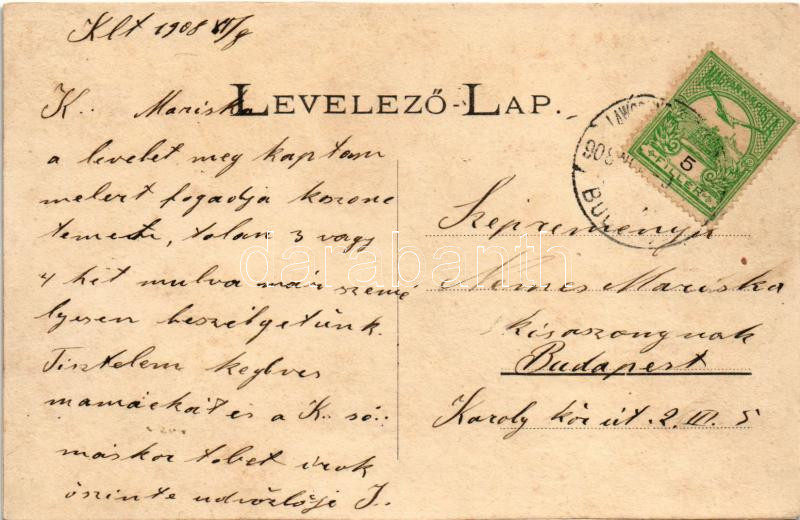 Klt 1908 VI/8
LEVELEZŐ-LAP.
K.. Mariska
a levelet meg kaptam
melert fogadja koszone
temet, talan 3 vagy
4 hét mulva már szemé
lyesen beszélgetünk.
Tisztelem kegyes
mamáckát és a K.. só..
máskor tobet irok
őszinte udvözlője J..
MAGYAR KIR. POSTA
5
FILLER
908
BU
Szépreményü
Mariska
kisaszonynak
Budapest
Karoly kör út. 2. III. 5
darabanth